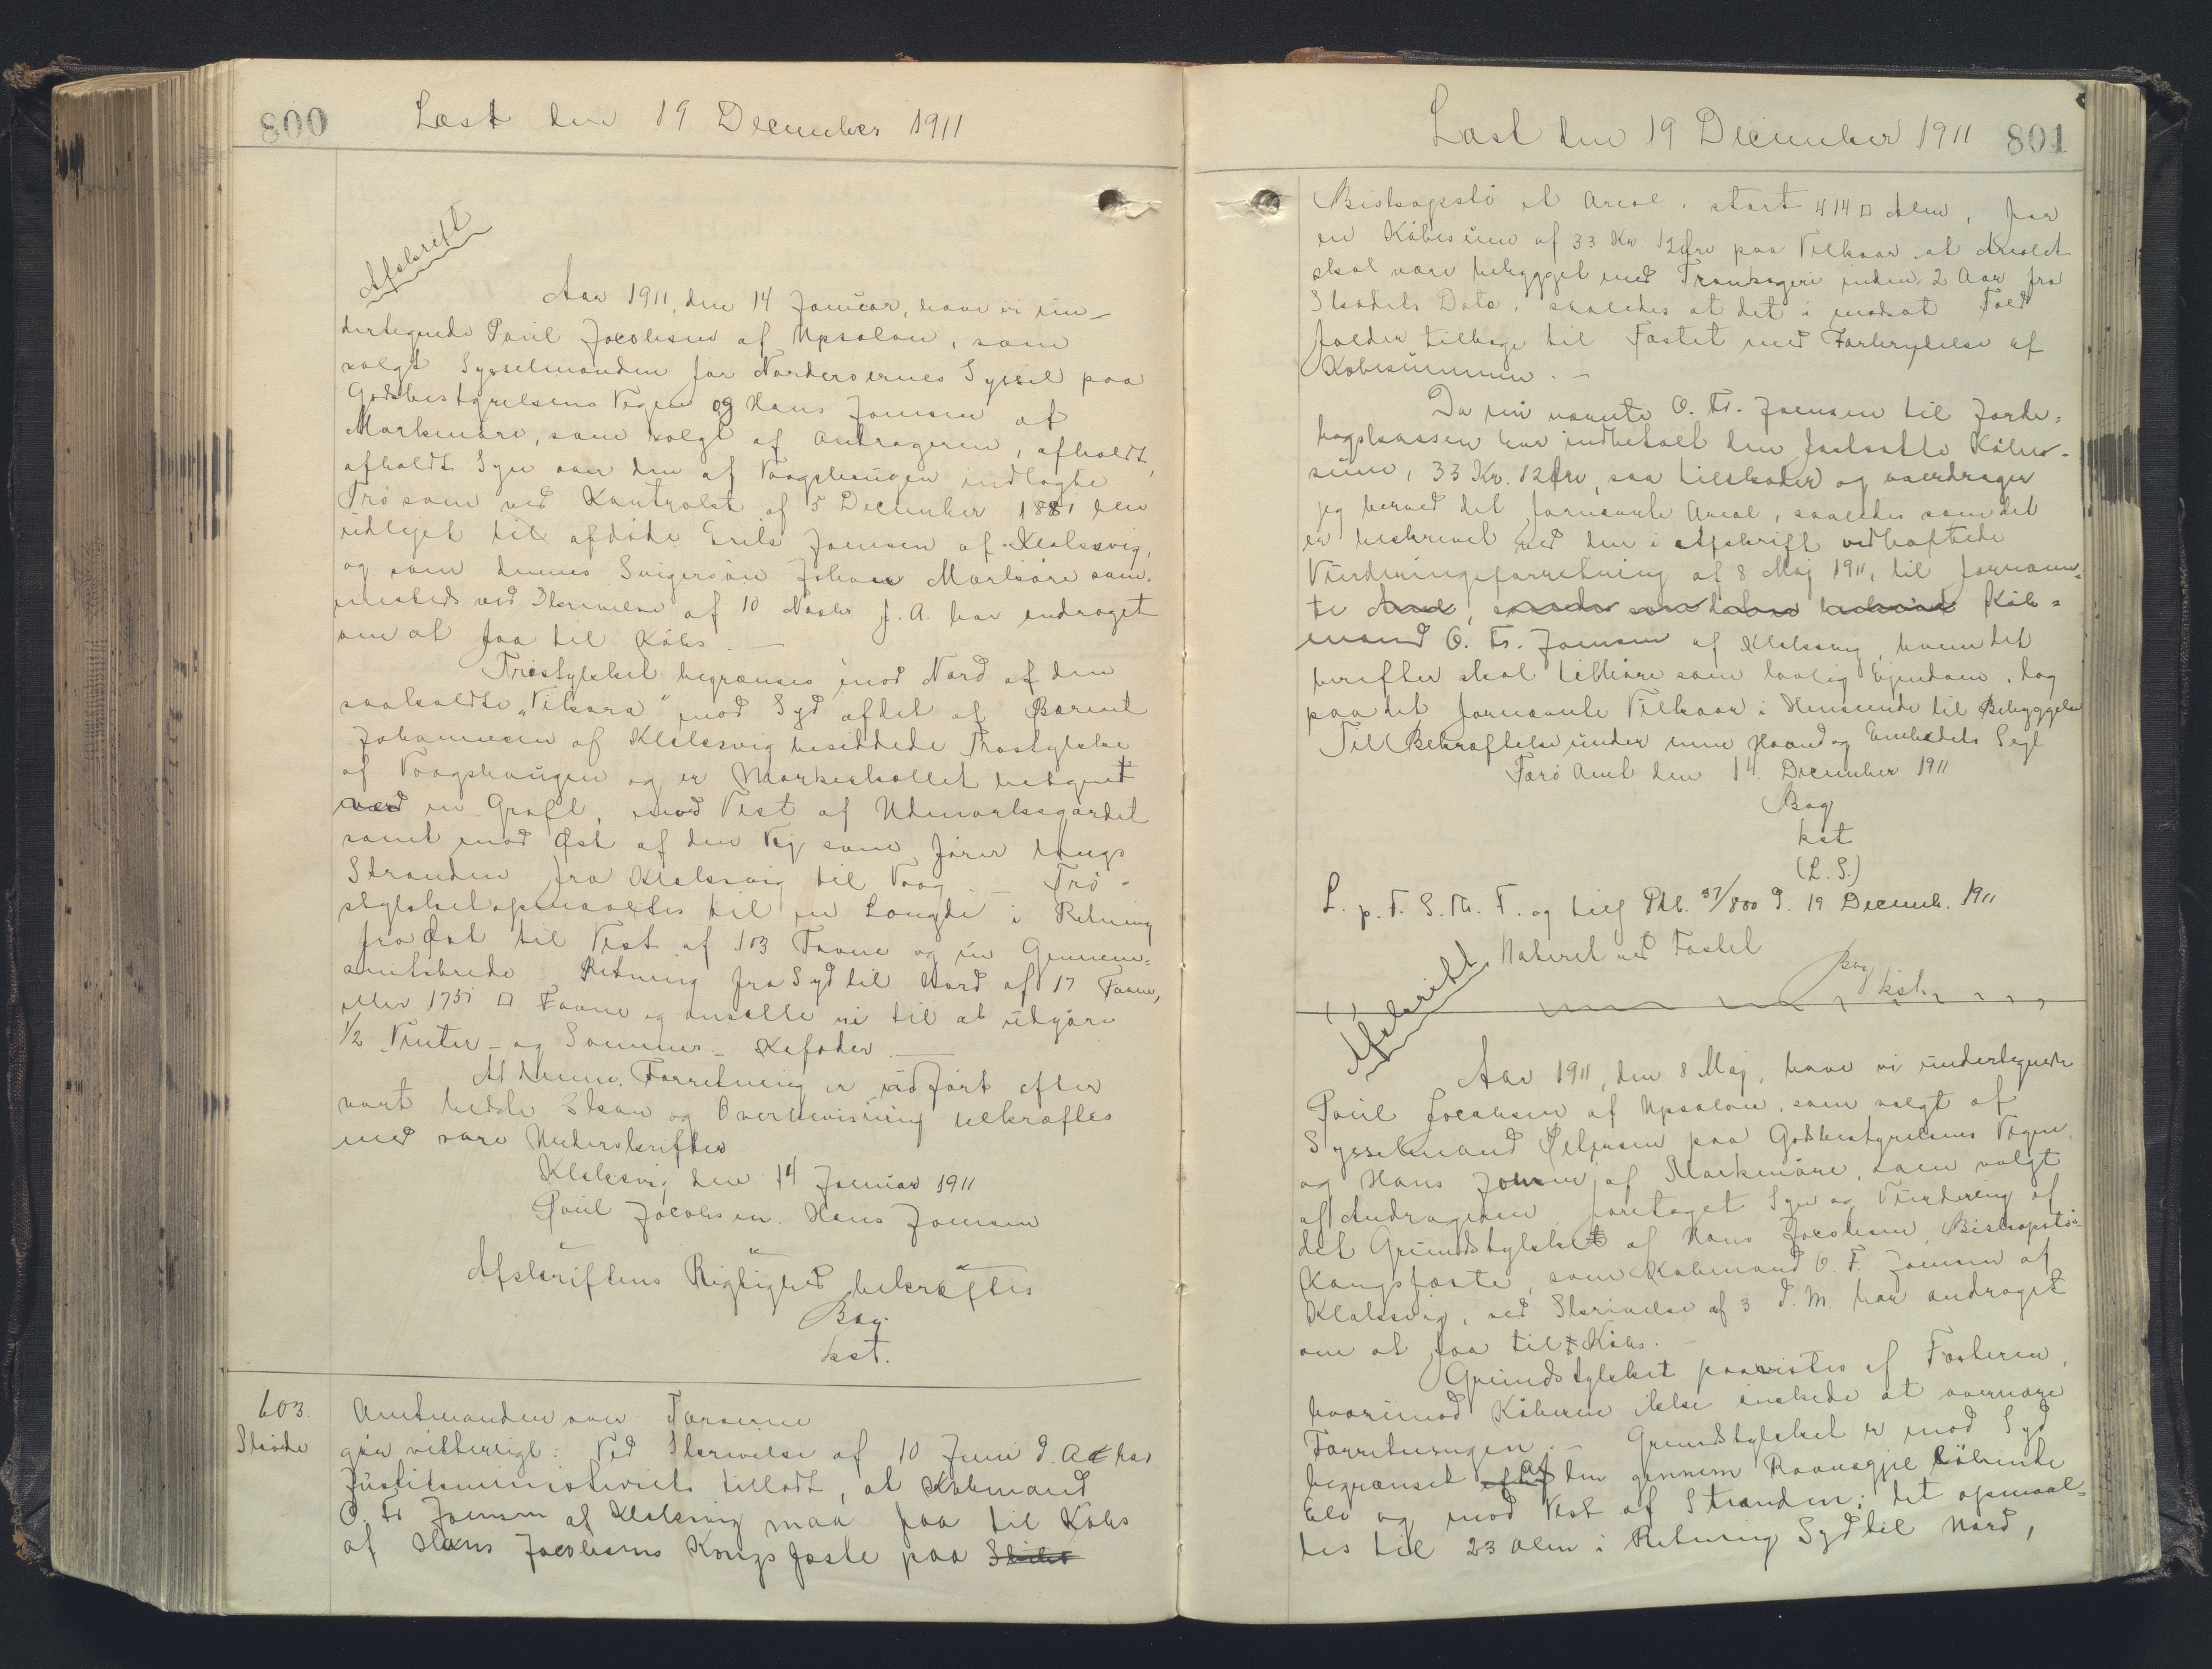 800
Læst den 19 December 1911
Afskrift
Aar 1911, den 14 Januar, have vi un-
dertegnede Poul Jacobsen af Upsalon, som
valgt Sysselmanden for Norderoernes Syssel paa
Godsbestyrelsens Vegne og Hans Joensen af
Markmøre, som valgt af Andrageren, afholdt,
afholdt Syn over den af Vaagshaugen indlagte
Trø som ved Kontrakt af 5 December 1881 blev
udlejet til afdøde Erik Joensen af Klaksvig,
og som dennes Svigersøn Johan Markøre sam-
mesteds ved Skrivelse af 10 Novbr f. A. har andraget
om at faa til Købs. —
Trøstykket begrænses mod Nord af den
saakaldte „Vikara" mod Syd af det af Barent
Johannesen af Klaksvig besiddede Trøstykke
af Vaagshaugen og er Markeskellet betegnet
ved en Grøft, mod Vest af Udmarksgærdet
samt mod Øst af den Vej som fører langs
Stranden fra Klaksvig til Vaag. — Trø-
stykket opmaaltes til en Længde i Retning
fra Øst til Vest af 103 Favne og en Gennem-
snitsbrede Retning fra Syd til Nord af 17 Favne,
eller 1751 □ Favne og ansatte vi til at udgøre
1/2 Vinter- og Sommer- Kofoder. —
At denne Forretning er udført efter
vort bedste Skøn og Overbevisning bekræftes
med vore Underskrifter
Klaksvig den 14 Januar 1911
Poul Jacobsen. Hans Joensen
Afskriftens Rigtighed bekræftes
Bay.
kst.
603.
Skøde
Amtmanden over Færøerne
gør vitterligt: Ved Skrivelse af 10 Juni d. A. har
Justitsministeriet tilladt, at Købmand
O. Fr. Joensen af Klaksvig maa faa til Købs
af Hans Jacobsens Kongsfæste paa
Læst den 19 December 1911
801
Biskopstø et Areal, stort 414 □ Alen, for
en Købesum af 33 Kr 12 Øre paa Vilkaar at Arealet
skal være bebygget med Transogeri inden 2 Aar fra
Skødets Dato, saaledes at det i modsat Fald
falder tilbage til Fæstet med Fortrydelse af
Købesummen. —
Da nu nævnte O. Fr. Joensen til Jorde-
bogskassen har indbetalt den fastsatte Købe-
sum, 33 Kr. 12 Øre, saa tilskøder og overdrager
jeg herved det fornævnte Areal, saaledes som det
er beskrevet ved den i Afskrift vedhæftede
Vurderingsforretning af 8 Maj 1911, til fornævn-
te Køb-
mand O. Fr. Joensen af Klaksvig, hvem det
herefter skal tilhøre som lovlig Ejendom, dog
paa det fornævnte Vilkaar i Henseende til Bebyggelse
Til Bekræftelse under min Haand og Embedets Segl
Færø Amt den 14. December 1911
Bay
kst
(L. S.)
L. p. F. S. Th. T. og tilf Ptb. 37/800 D. 19 Decemb. 1911
Noteret ved Fæstet
Bay
kst.
Afskrift
Aar 1911, den 8 Maj, have vi undertegnede
Poul Jacobsen af Upsalon, som valgt af
Sysselmand Oliversen paa Godsbestyrelsens Vegne,
og Hans Joensen af Markmøre, som valgt
af Andrageren foretaget Syn og Vurdering af
det Grundstykket af Hans Jacobsen, Biskopstø-
Kongsfæste, som Købmand O. F. Joensen af
Klaksvig, ved Skrivelse af 3 d. M. har andraget
om at faa til Købs. —
Grundstykket paavistes af Fæsteren,
hvorimod Køberen ikke ønskede at overvære
Forretningen. — Grundstykket er mod Syd
begrænset af den gennem Ravnagjie løbende
Elv og mod Vest af Stranden; det opmaal-
tes til 23 Alen i Retning Syd til Nord,